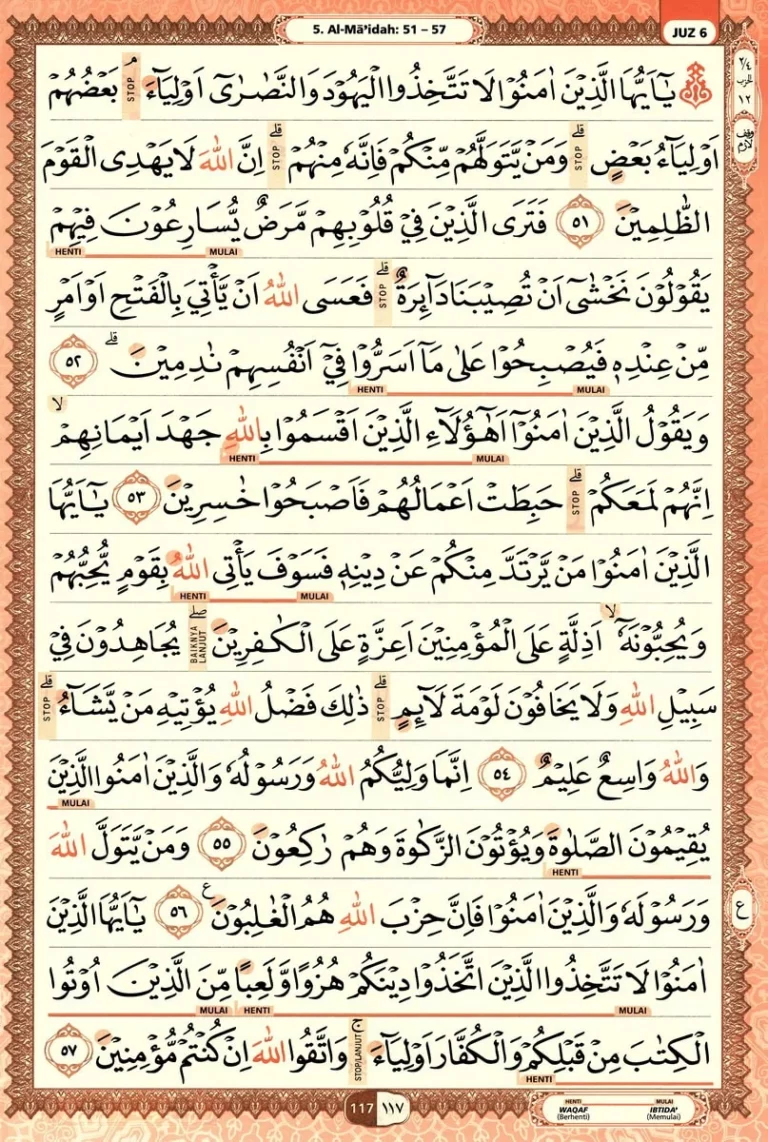 5. Al-Mā'idah: 51 – 57
JUZ 6
يٰٓاَيُّهَا الَّذِيْنَ اٰمَنُوْا لَا تَتَّخِذُوا الْيَهُوْدَ وَالنَّصٰرٰٓى اَوْلِيَاۤءَ ۘ STOP بَعْضُهُمْ
اَوْلِيَاۤءُ بَعْضٍ ۗ STOP وَمَنْ يَّتَوَلَّهُمْ مِّنْكُمْ فَاِنَّهٗ مِنْهُمْ ۗ STOP اِنَّ اللّٰهَ لَا يَهْدِى الْقَوْمَ
الظّٰلِمِيْنَ ٥١ فَتَرَى الَّذِيْنَ فِيْ قُلُوْبِهِمْ مَّرَضٌ يُّسَارِعُوْنَ فِيْهِمْ
MULAI HENTI
يَقُوْلُوْنَ نَخْشٰٓى اَنْ تُصِيْبَنَا دَاۤىِٕرَةٌ ۗ STOP فَعَسَى اللّٰهُ اَنْ يَّأْتِيَ بِالْفَتْحِ اَوْ اَمْرٍ
مِّنْ عِنْدِهٖ فَيُصْبِحُوْا عَلٰى مَآ اَسَرُّوْا فِيْٓ اَنْفُسِهِمْ نٰدِمِيْنَ ۗ ٥٢
MULAI HENTI
وَيَقُوْلُ الَّذِيْنَ اٰمَنُوْٓا اَهٰٓؤُلَاۤءِ الَّذِيْنَ اَقْسَمُوْا بِاللّٰهِ جَهْدَ اَيْمَانِهِمْ ۙ
MULAI HENTI
اِنَّهُمْ لَمَعَكُمْ ۗ STOP حَبِطَتْ اَعْمَالُهُمْ فَاَصْبَحُوْا خٰسِرِيْنَ ٥٣ يٰٓاَيُّهَا
الَّذِيْنَ اٰمَنُوْا مَنْ يَّرْتَدَّ مِنْكُمْ عَنْ دِيْنِهٖ فَسَوْفَ يَأْتِى اللّٰهُ بِقَوْمٍ يُّحِبُّهُمْ
MULAI HENTI
وَيُحِبُّوْنَهٗٓ ۙ اَذِلَّةٍ عَلَى الْمُؤْمِنِيْنَ اَعِزَّةٍ عَلَى الْكٰفِرِيْنَ ۖ BAIKNYA LANJUT يُجَاهِدُوْنَ فِيْ
سَبِيْلِ اللّٰهِ وَلَا يَخَافُوْنَ لَوْمَةَ لَاۤىِٕمٍ ۗ STOP ذٰلِكَ فَضْلُ اللّٰهِ يُؤْتِيْهِ مَنْ يَّشَاۤءُ ۗ STOP
وَاللّٰهُ وَاسِعٌ عَلِيْمٌ ٥٤ اِنَّمَا وَلِيُّكُمُ اللّٰهُ وَرَسُوْلُهٗ وَالَّذِيْنَ اٰمَنُوا الَّذِيْنَ
MULAI
يُقِيْمُوْنَ الصَّلٰوةَ وَيُؤْتُوْنَ الزَّكٰوةَ وَهُمْ رٰكِعُوْنَ ٥٥ وَمَنْ يَّتَوَلَّ اللّٰهَ
HENTI
وَرَسُوْلَهٗ وَالَّذِيْنَ اٰمَنُوْا فَاِنَّ حِزْبَ اللّٰهِ هُمُ الْغٰلِبُوْنَ ࣖ ٥٦ يٰٓاَيُّهَا الَّذِيْنَ
اٰمَنُوْا لَا تَتَّخِذُوا الَّذِيْنَ اتَّخَذُوْا دِيْنَكُمْ هُزُوًا وَّلَعِبًا مِّنَ الَّذِيْنَ اُوْتُوا
MULAI HENTI MULAI
الْكِتٰبَ مِنْ قَبْلِكُمْ وَالْكُفَّارَ اَوْلِيَاۤءَ ۚ STOP/LANJUT وَاتَّقُوا اللّٰهَ اِنْ كُنْتُمْ مُّؤْمِنِيْنَ ٥٧
HENTI
٢/٤
الحزب
١٢
وقف
لازم
ع
117 ١١٧
HENTI MULAI
WAQAF IBTIDA'
(Berhenti) (Memulai)